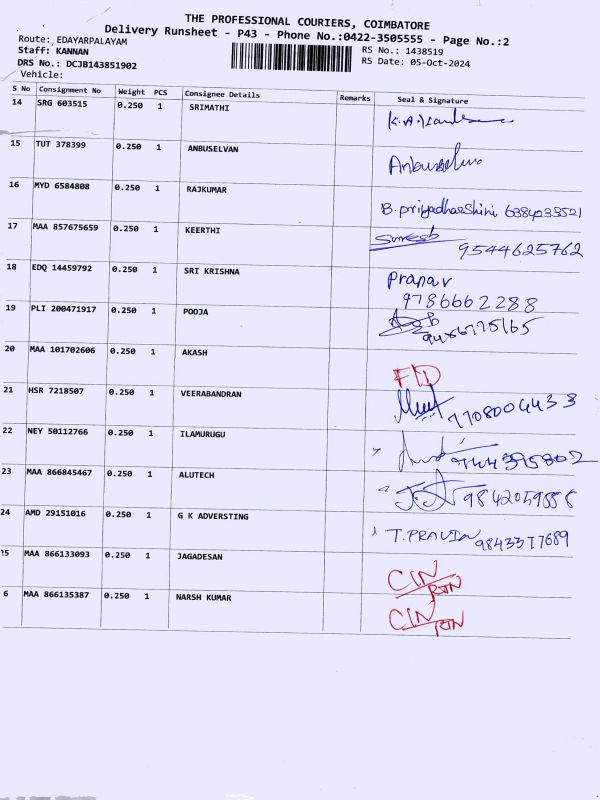 THE PROFESSIONAL COURIERS, COIMBATORE
Delivery Runsheet - P43 - Phone No.:0422-3505555 - Page No.:2
Route: EDAYARPALAYAM
RS No.: 1438519
Staff: KANNAN
RS Date: 05-Oct-2024
DRS No.: DCJB143851902
Vehicle:
S No Consignment No Weight PCS Consignee Details Remarks Seal & Signature
14 SRG 603515 0.250 1 SRIMATHI
15 TUT 378399 0.250 1 ANBUSELVAN Anbuselvan
16 MYD 6584808 0.250 1 RAJKUMAR B.priyadharshini 6384233521
17 MAA 857675659 0.250 1 KEERTHI Suresh 9544625762
18 EDQ 14459792 0.250 1 SRI KRISHNA Pranav
9786662288
19 PLI 200471917 0.250 1 POOJA
20 MAA 101702606 0.250 1 AKASH
21 HSR 7218507 0.250 1 VEERABANDRAN 7708004433
22 NEY 50112766 0.250 1 ILAMURUGU
23 MAA 866845467 0.250 1 ALUTECH
24 AMD 29151016 0.250 1 G K ADVERSTING T. PRAVIN 9843377689
25 MAA 866133093 0.250 1 JAGADESAN CIN
RTN
6 MAA 866135387 0.250 1 NARSH KUMAR CIN
RTN